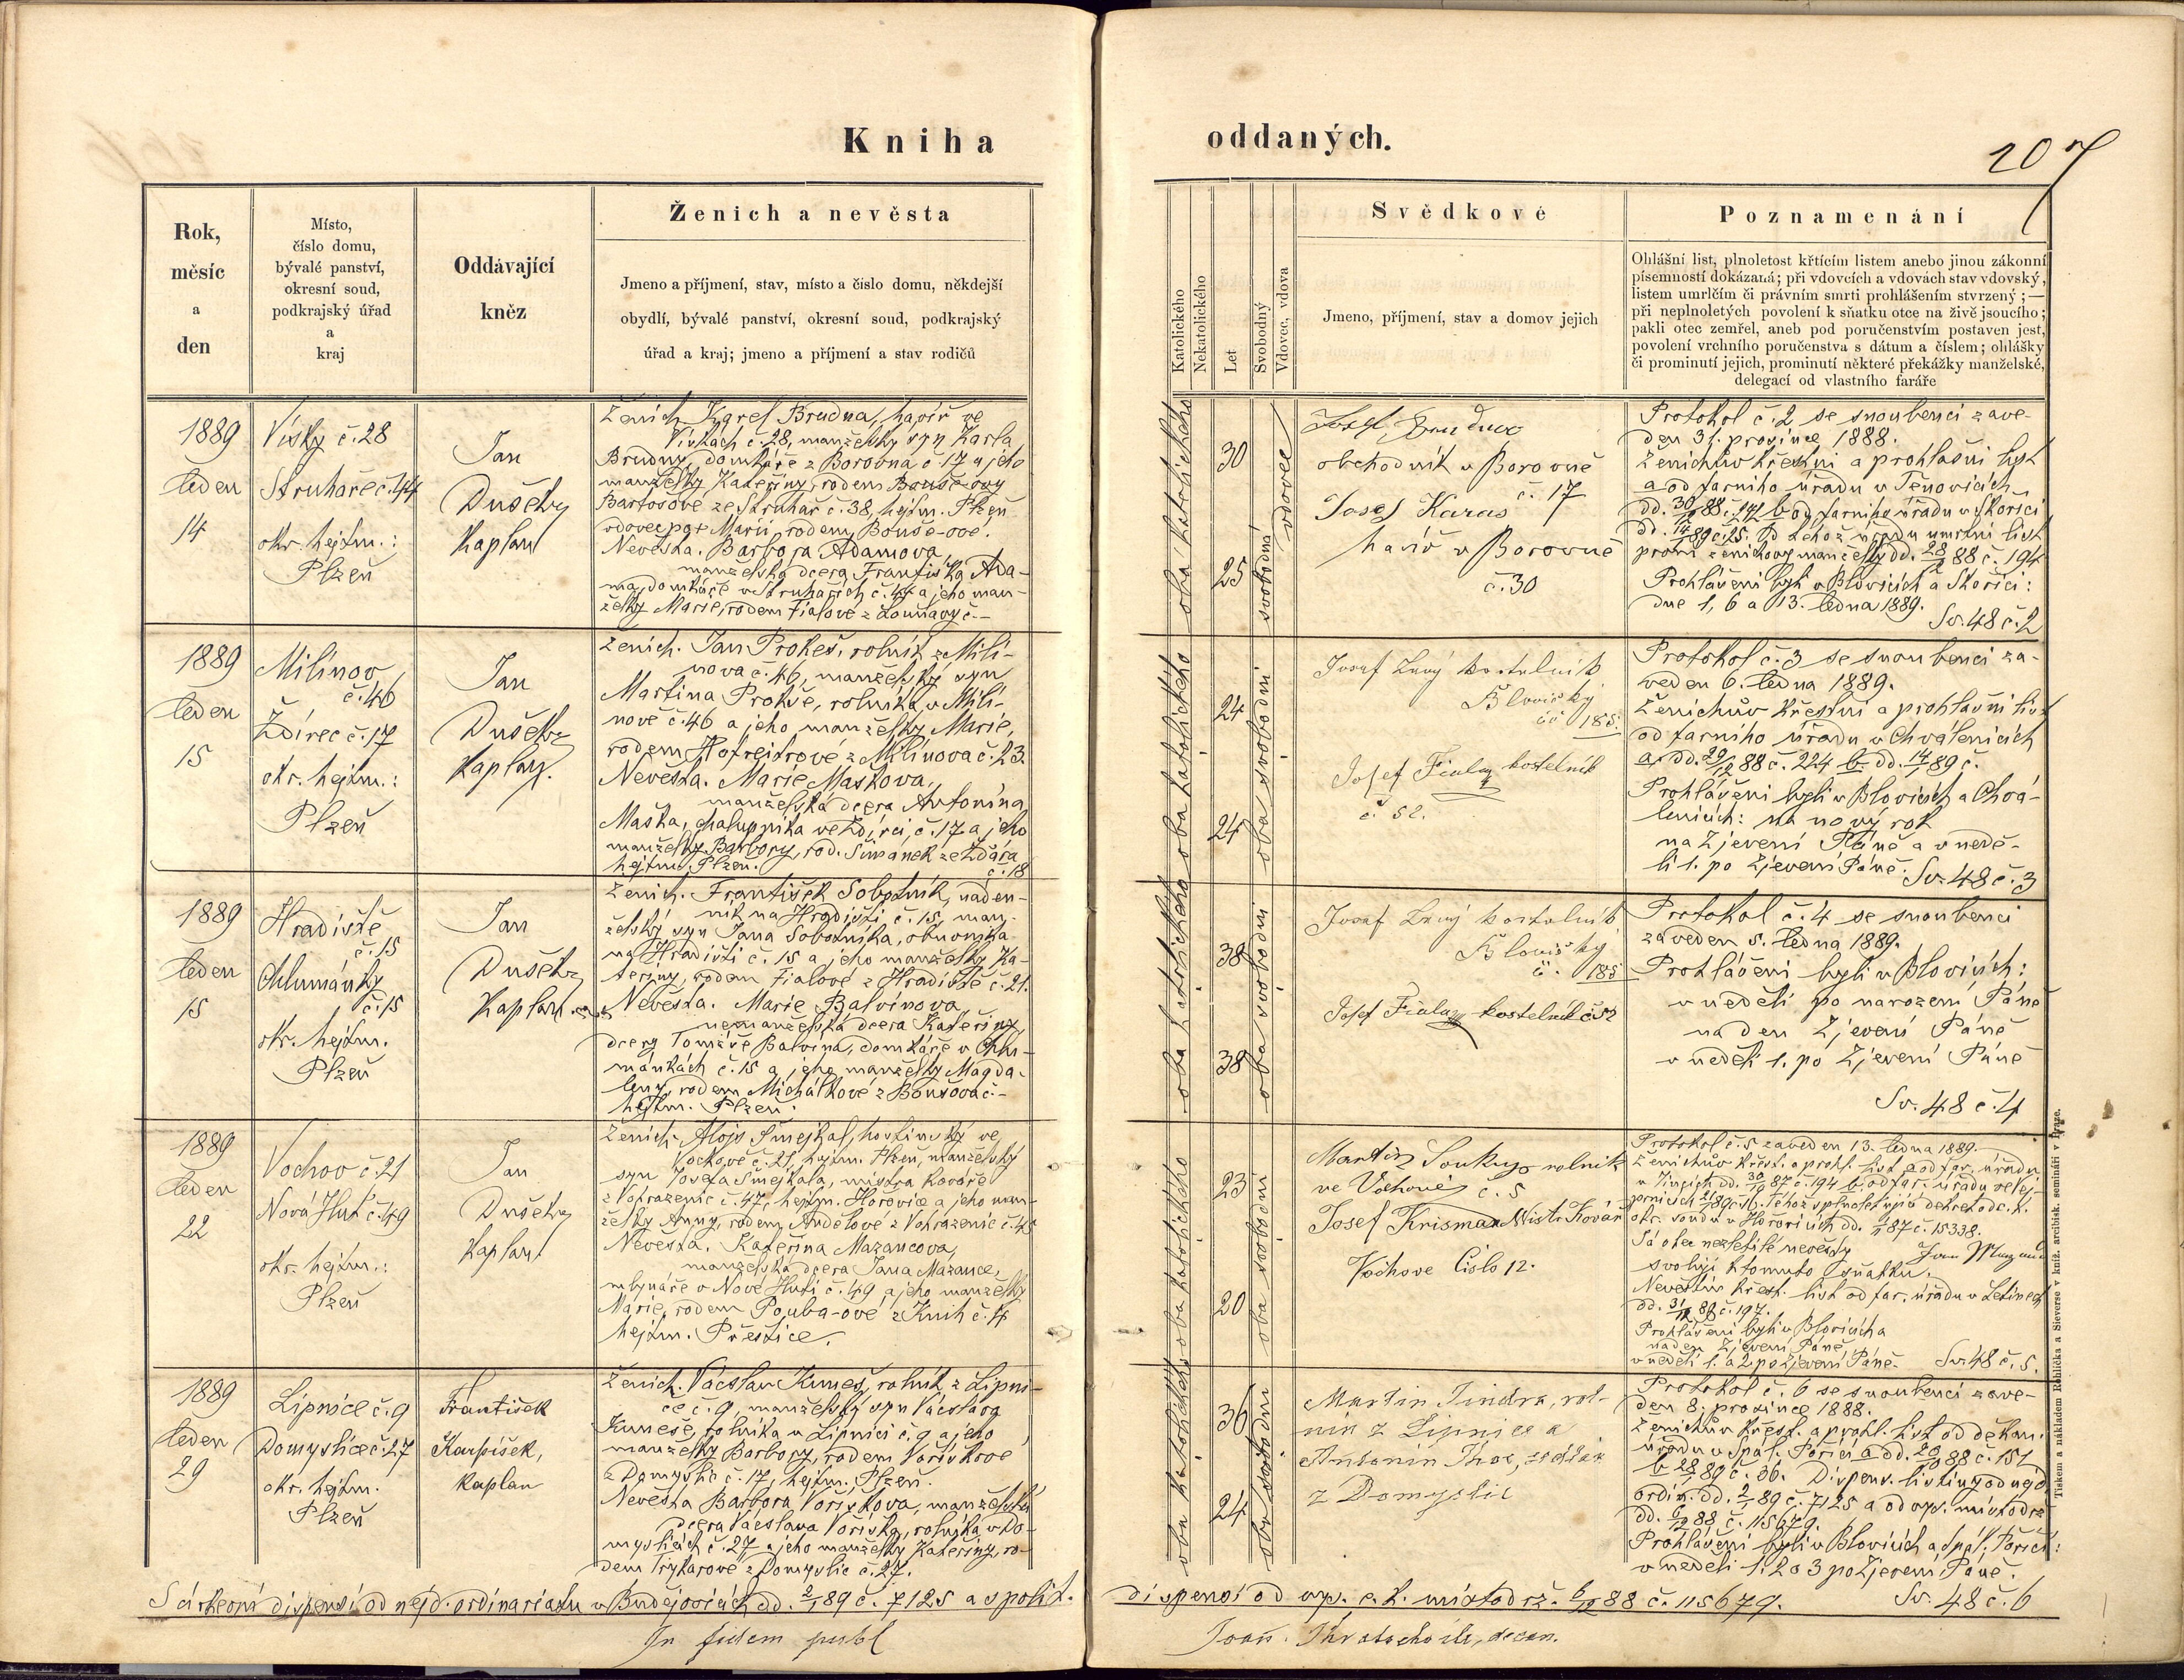 Kniha
oddaných.
207
Rok,
měsíc
a
den
Místo,
číslo domu,
bývalé panství,
okresní soud,
podkrajský úřad
a
kraj
Oddávající
kněz
Ženich a nevěsta
Jmeno a příjmení, stav, místo a čislo domu, někdejší
obydlí, bývalé panství, okresní soud, podkrajský
úřad a kraj; jmeno a příjmení a stav rodičů
Katolického
Nekatolického
Let
Svobodný
Vdovec, vdova
Svědkové
Jmeno, příjmení, stav a domov jejich
Poznamenání
Ohlášní list, plnoletost křtícím listem anebo jinou zákonní
písemností dokázaná; při vdovcích a vdovách stav vdovský,
listem umrlčím či právním smrti prohlášením stvrzený; —
při neplnoletých povolení k sňatku otce na živě jsoucího;
pakli otec zemřel, aneb pod poručenstvím postaven jest,
povolení vrchního poručenstva s dátum a číslem; ohlášky
či prominutí jejich, prominutí některé překážky manželské,
delegací od vlastního faráře
1889
leden
14
Vísky č. 28
Struhaře č. 44
okr. hejtm.:
Plzeň
Jan
Dušek
Kaplan
Ženich Karel Brudna, havíř ve
Vískách č. 28, manželský syn Karla
Brudny, domkáře z Borovna č 17 a jeho
manželky Kateřiny, rodem Bouše-ovy
Bartošové ze Struhař č. 38, hejtm. Plzeň
vdovec po † Marii, rodem Bouše-ové.
Nevěsta. Barbora Adamova,
manželská dcera Františka Ada-
ma, domkáře v Struhařích č. 44 a jeho man-
želky Marie, rodem Fialové z Louňavy č. —
oba katolického
30
25
vdovec
svobodná
Josef Brudna
obchodník v Borovně
č. 17
Josef Karas
havíř v Borovně
č. 30
Protokol č. 2 se snoubenci zave-
den 31. prosince 1888.
Ženichův křestní a prohlašní list
a od farního úřadu v Těnovicích
dd. 30/12 88 č. 171 b od farního úřadu v Skořici
dd. 14/1 89 č. 25. Od téhož úřadu umrtní list
první ženichovy manželky dd. 28/12 88 č. 194
Prohlášeni byli v Blovicích a Skořici:
dne 1, 6 a 13. ledna 1889.
Sv. 48 č. 2
1889
leden
15
Milínov
č. 46
Ždírec č. 17
okr. hejtm.:
Plzeň
Jan
Dušek
Kaplan.
Ženich. Jan Prokeš, rolník z Milí-
nova č. 46, manželský syn
Martina Prokše, rolníka v Milí-
nově č. 46 a jeho manželky Marie,
rodem Hofreitrové z Milínova č. 23
Nevěsta. Marie Maškova,
manželská dcera Antonína
Maška, chalupníka ve Ždírci, č. 17 a jeho
manželky Barbory, rod. Šimánek ze Ždára
hejtm. Plzeň. č. 18
oba katolického
24
24
oba svobodni
Josef Levý kostelník
Blovický
čč 185
Josef Fiala kostelník
č. 52.
Protokol č. 3 se snoubenci za-
veden 6. ledna 1889.
Ženichův křestní a prohlašní list
od farního úřadu v Chválenicích
a. dd. 29/12 88 č. 224 b. dd. 14/1 89 č.
Prohlášeni byli v Blovicích a Chvá-
lenicích: na nový rok
na Zjevení Páně a v nedě-
li 1. po Zjevení Páně. Sv. 48 č. 3
1889
leden
15
Hradiště
č. 15
Chlumánky
č. 15
okr. hejtm.
Plzeň
Jan
Dušek
Kaplan.
Ženich. František Sobotník, náden-
ník na Hradišti č. 15, man-
želský syn Jana Sobotníka, obuvníka
na Hradišti č. 15 a jeho manželky Ka-
teřiny, rodem Fialové z Hradiště č. 21.
Nevěsta. Marie Balvínova
nemanželská dcera Kateřiny,
dcery Tomáše Balvína, domkáře v Chlu-
mánkách č. 15 a jeho manželky Magda-
leny, rodem Michálkové z Boušova č. —
hejtm. Plzeň.
oba katolického
38
38
oba svobodni
Josef Levý kostelník
Blovický
č. 185
Josef Fiala kostelník č 52
Protokol č. 4 se snoubenci
zaveden 5. ledna 1889.
Prohlášeni byli v Blovicích:
v neděli po narození Páně
na den Zjevení Páně
v neděli 1. po Zjevení Páně
Sv. 48 č. 4
1889
leden
22
Vochov č. 21
Nová Huť č. 49
okr. hejtm.:
Plzeň
Jan
Dušek
Kaplan
Ženich. Alojs Šmejkal, hostinský ve
Vochově č. 21, hejtm. Plzeň, manželský
syn Josefa Šmejkala, mistra kováře
z Vokraženic č. 47, hejtm. Hořovice a jeho man-
želky Anny, rodem Andělové z Vokraženic č. 45
Nevěsta. Kateřina Mazancova,
manželská dcera Jana Mazance,
mlynáře v Nové Huti č. 49 a jeho manželky
Marie, rodem Pouba-ové z Knih č. 4
hejtm. Přeštice.
oba katolického
23
20
oba svobodni
Martin Soukup rolník
ve Vochově č. 5
Josef Krisman Mistr Kovář
Vochove Číslo 12.
Protokol č. 5 zaveden 13. ledna 1889.
Ženichův křest. a prohl. list a od far. úřadu
okr. soudu v Hořovicích dd. 87 č. 15338.
Já otec nezletilé nevěsty
svoluji k tomuto sňatku. Jan Mazanec
Nevěstin křest. list od far. úřadu v Letinech
dd. 31/12 88 č. 197.
Prohlášeni byli v Blovicích a
na den Zjevení Páně,
v neděli 1. a 2. po Zjevení Páně. Sv. 48 č. 5.
1889
leden
29
Lipnice č. 9
Domyslice č. 27
okr. hejtm.
Plzeň
František
Karpíšek,
kaplan
Ženich. Václav Kuneš, rolník z Lipni-
ce č. 9, manželský syn Václava
Kuneše, rolníka v Lipnici č. 9 a jeho
manželky Barbory, rodem Voříškové
z Domyslic č. 17, hejtm. Plzeň.
Nevěsta Barbora Voříškova, manželská
dcera Václava Voříška, rolníka v Do-
myslicích č. 27 a jeho manželky Kateřiny, ro-
dem Trykarové z Domyslic č. 27.
oba katolického
36
24
oba svobodni
Martin Jindra, rol-
ník z Lipnice a
Antonín sedlák
z Domyslic
Protokol č. 6 se snoubenci zave-
den 8. prosince 1888.
Ženichův křest. a prohl. list od děkan.
úřadu v Spál. Poříčí a dd. 20/12 88 č. 151
b 28/1 89 č. 36. Dispens. listiny od nejd.
ordin. dd. 2/1 89 č. 7125 a od vys. místodrž.
dd. 6/12 88 č. 115679.
Prohlášeni byli v Blovicích a Spál. Poříčí:
v neděli 1. 2 a 3 po Zjevení Páně.
S církevní dispensí od nejd. ordinariatu v Budějovicích dd. 2/1 89 č. 7125 a s polit.
dispensí od vys. c. k. místodrž. 6/12 88 č. 115679. Sv. 48 č. 6
In fidem publ
Joan. decan.
Tiskem a nákladem Rohlíčka a Sieverse v kníž. arcibisk. semináři v Praze.